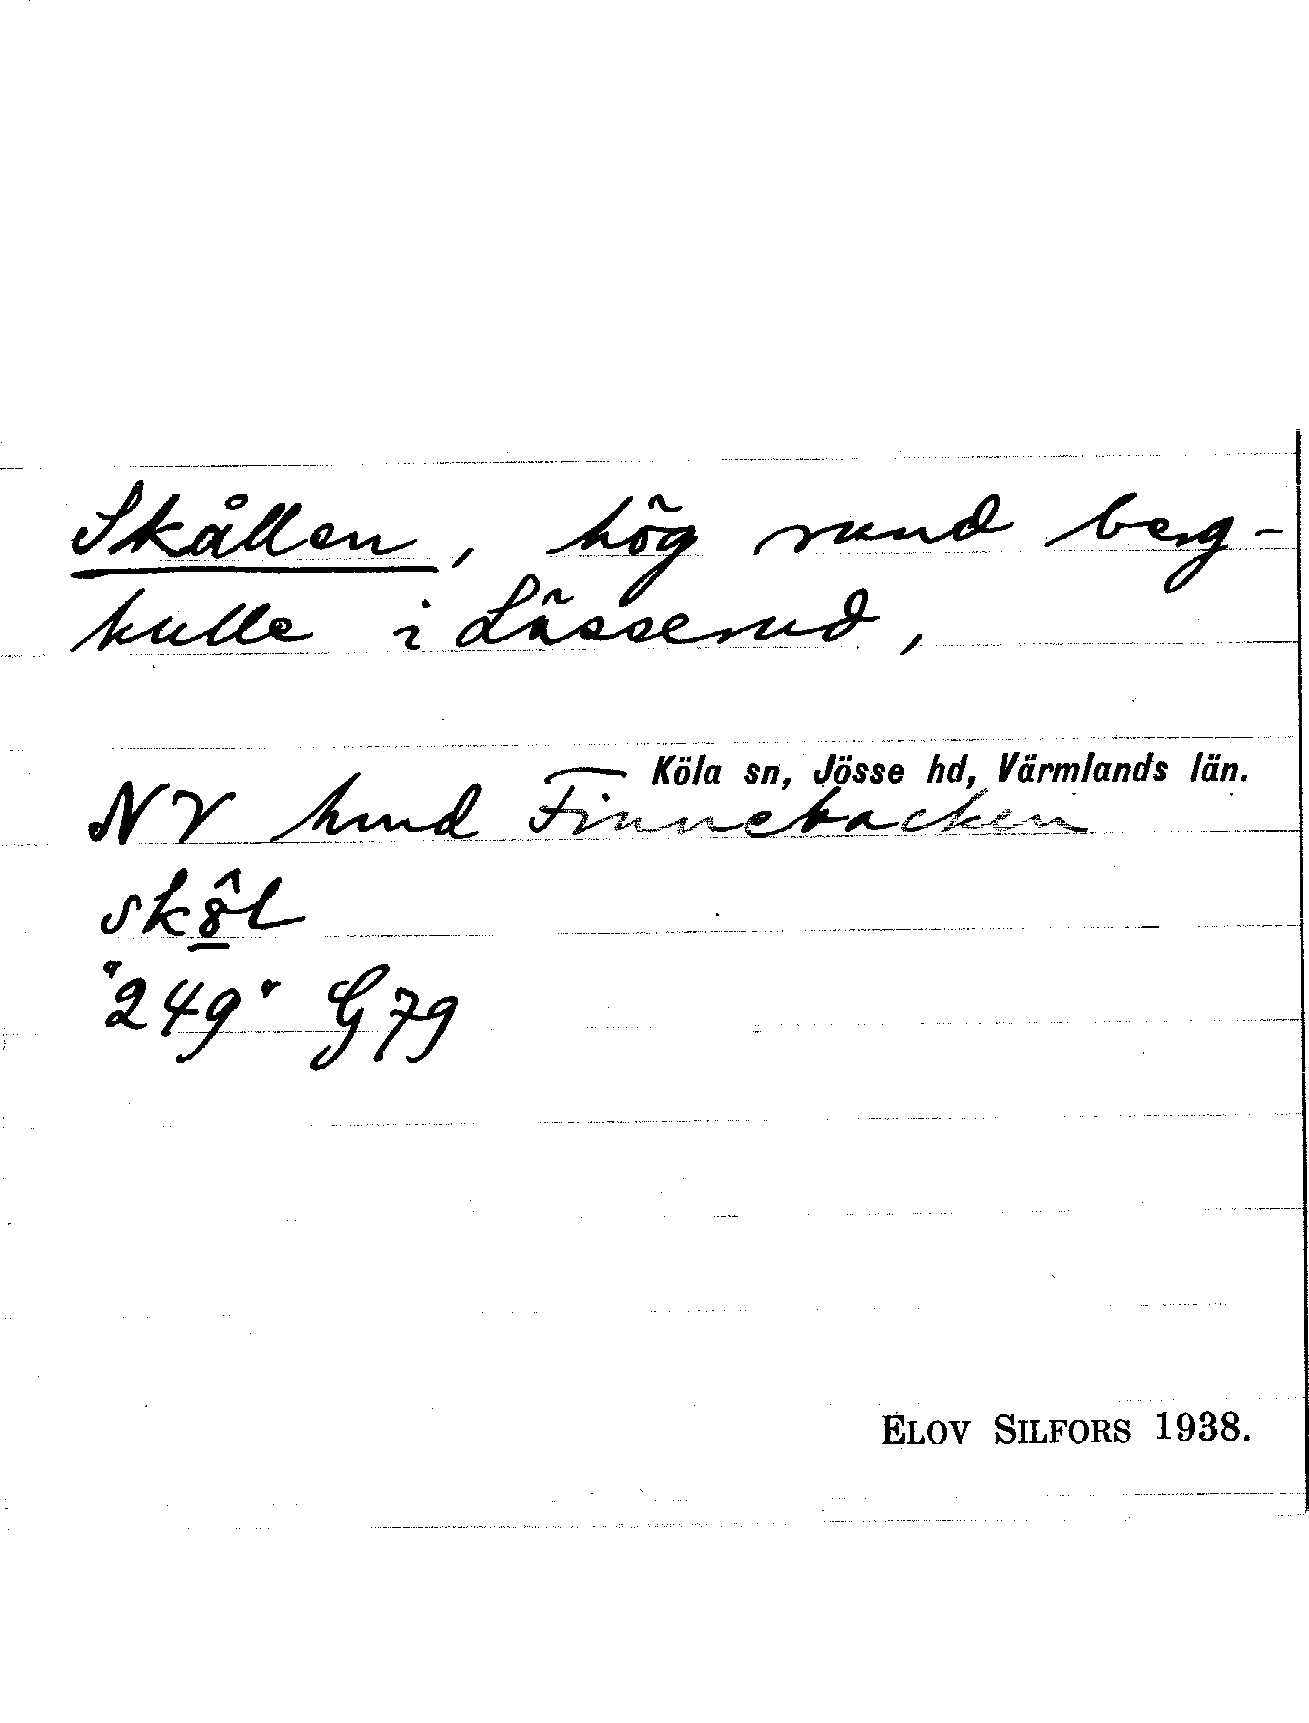 Skållen, hög rund berg-
kulle i Lässerud,
Köla sn, Jösse hd, Värmlands län.
NV hmd Finnebacken
"249" G79
ELOV SILFORS 1938.